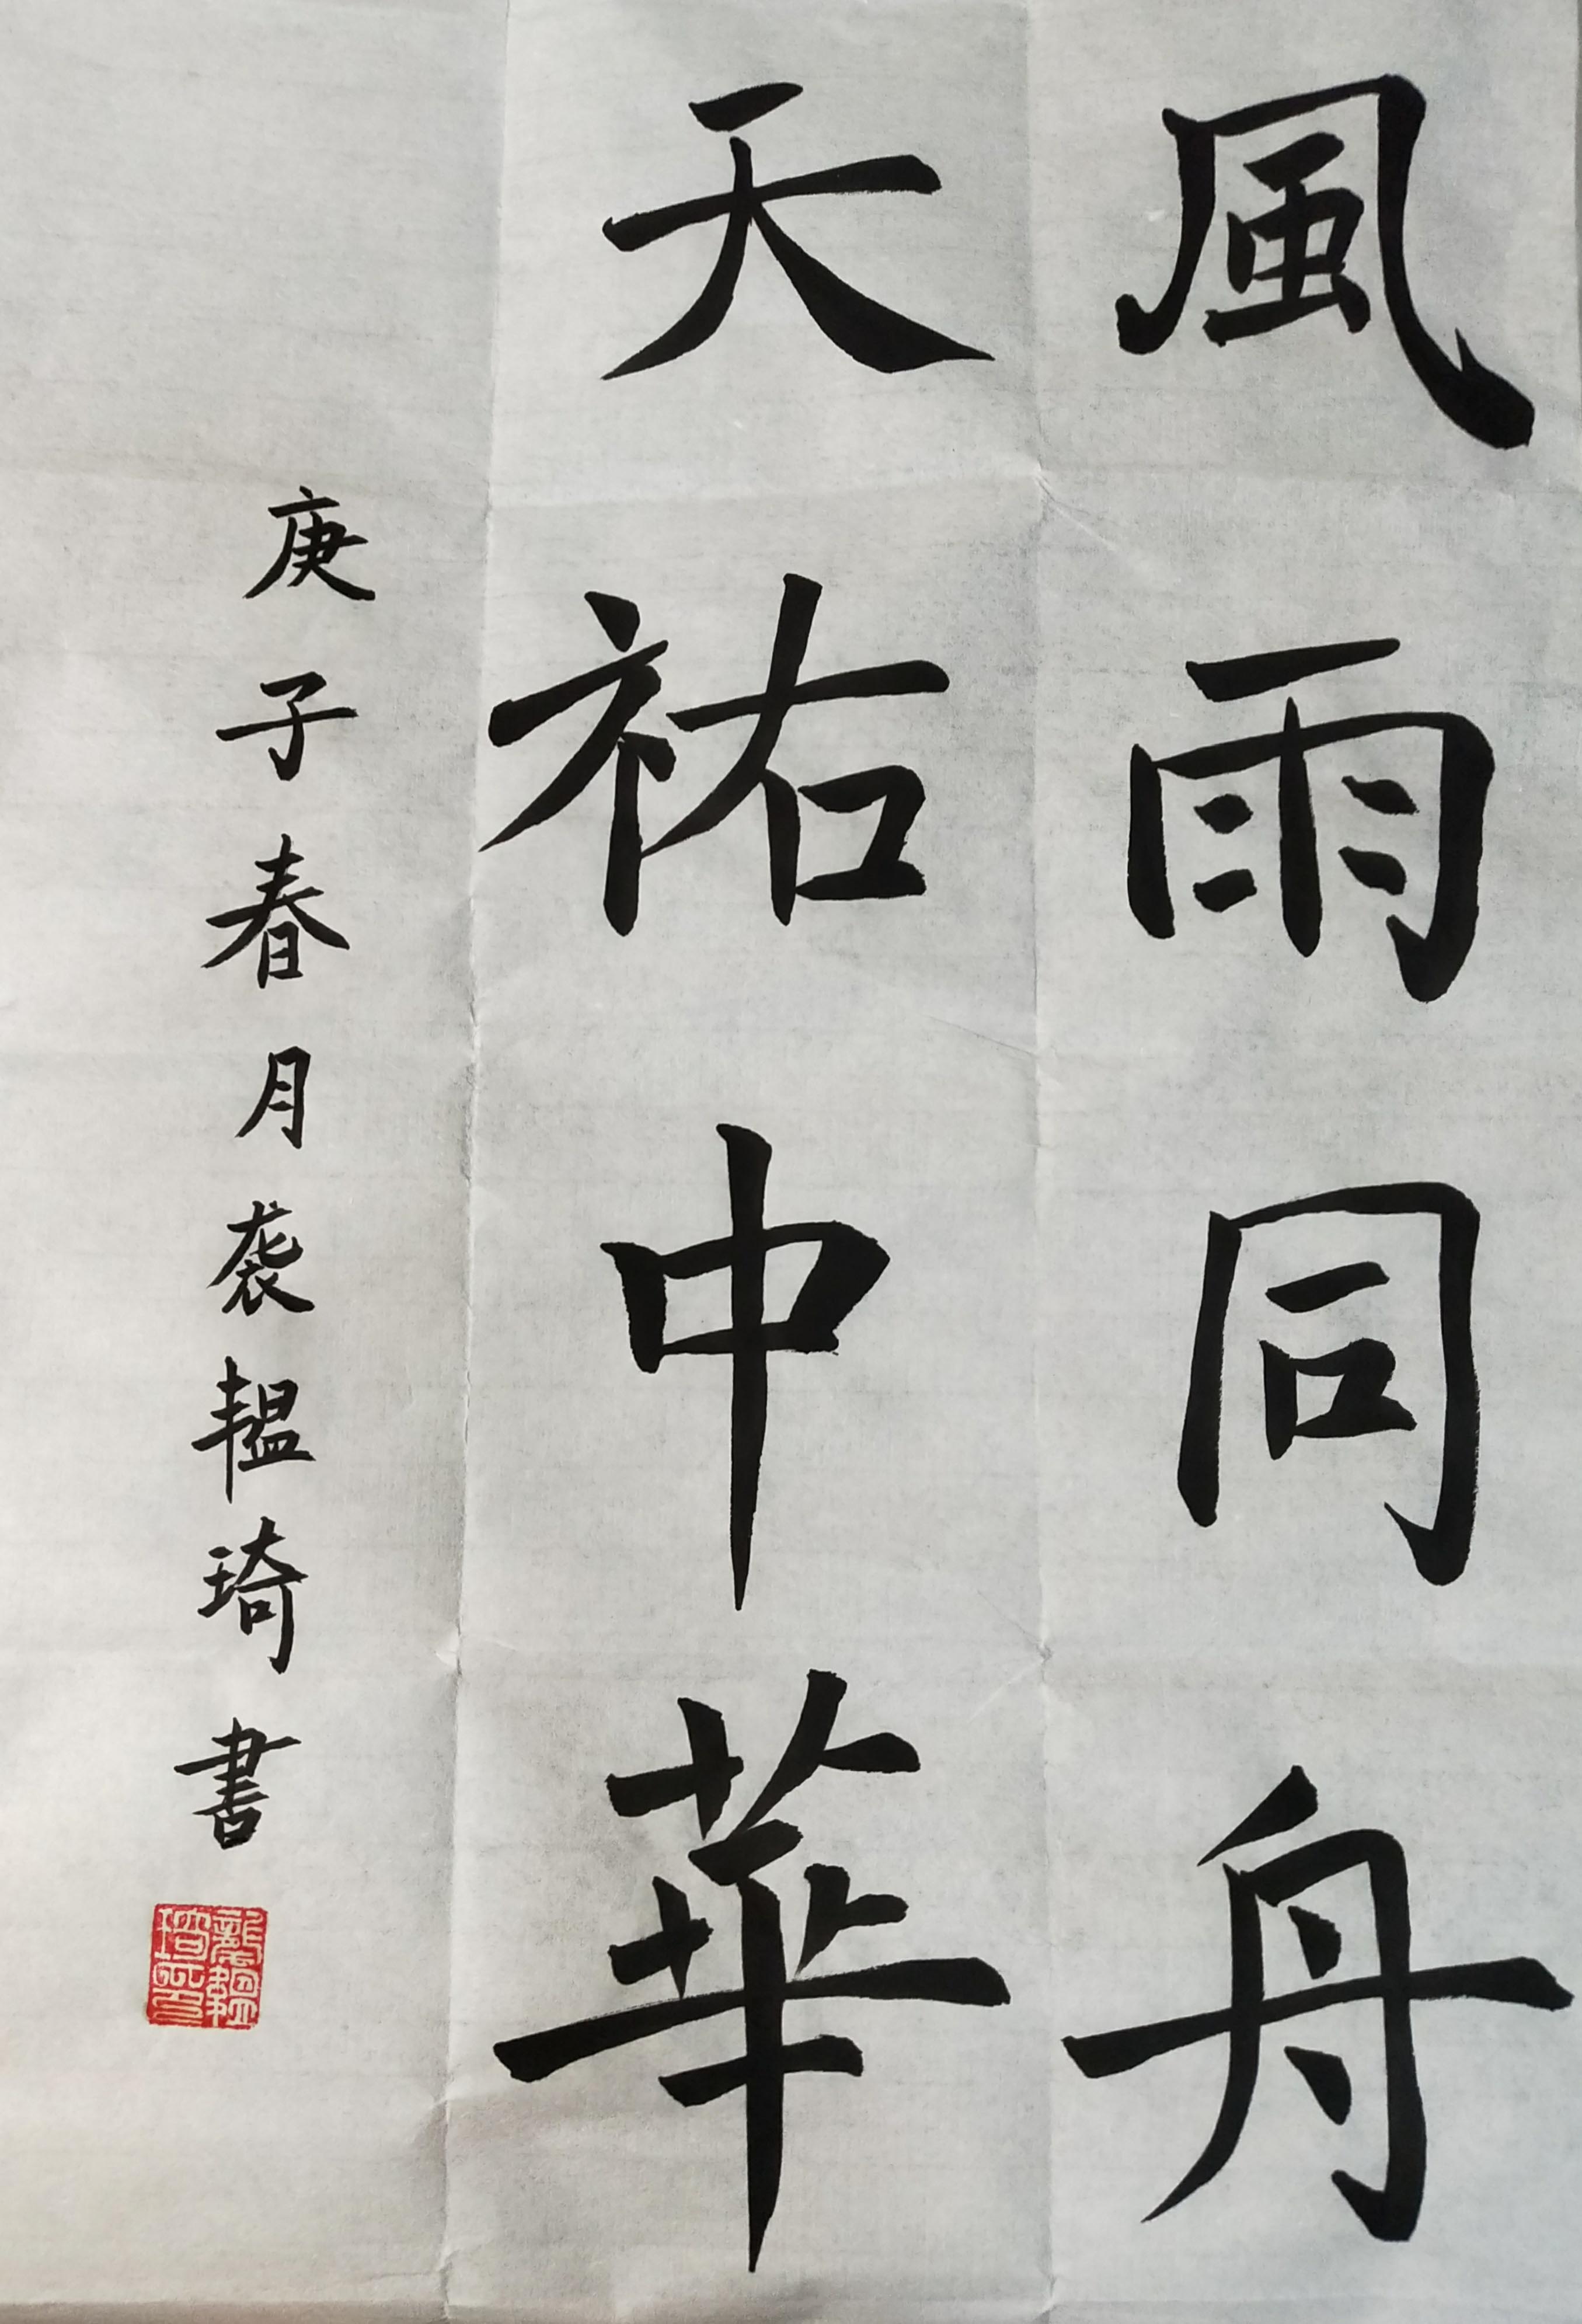 風雨同舟
天祐中華
庚子春月袭韫琦書